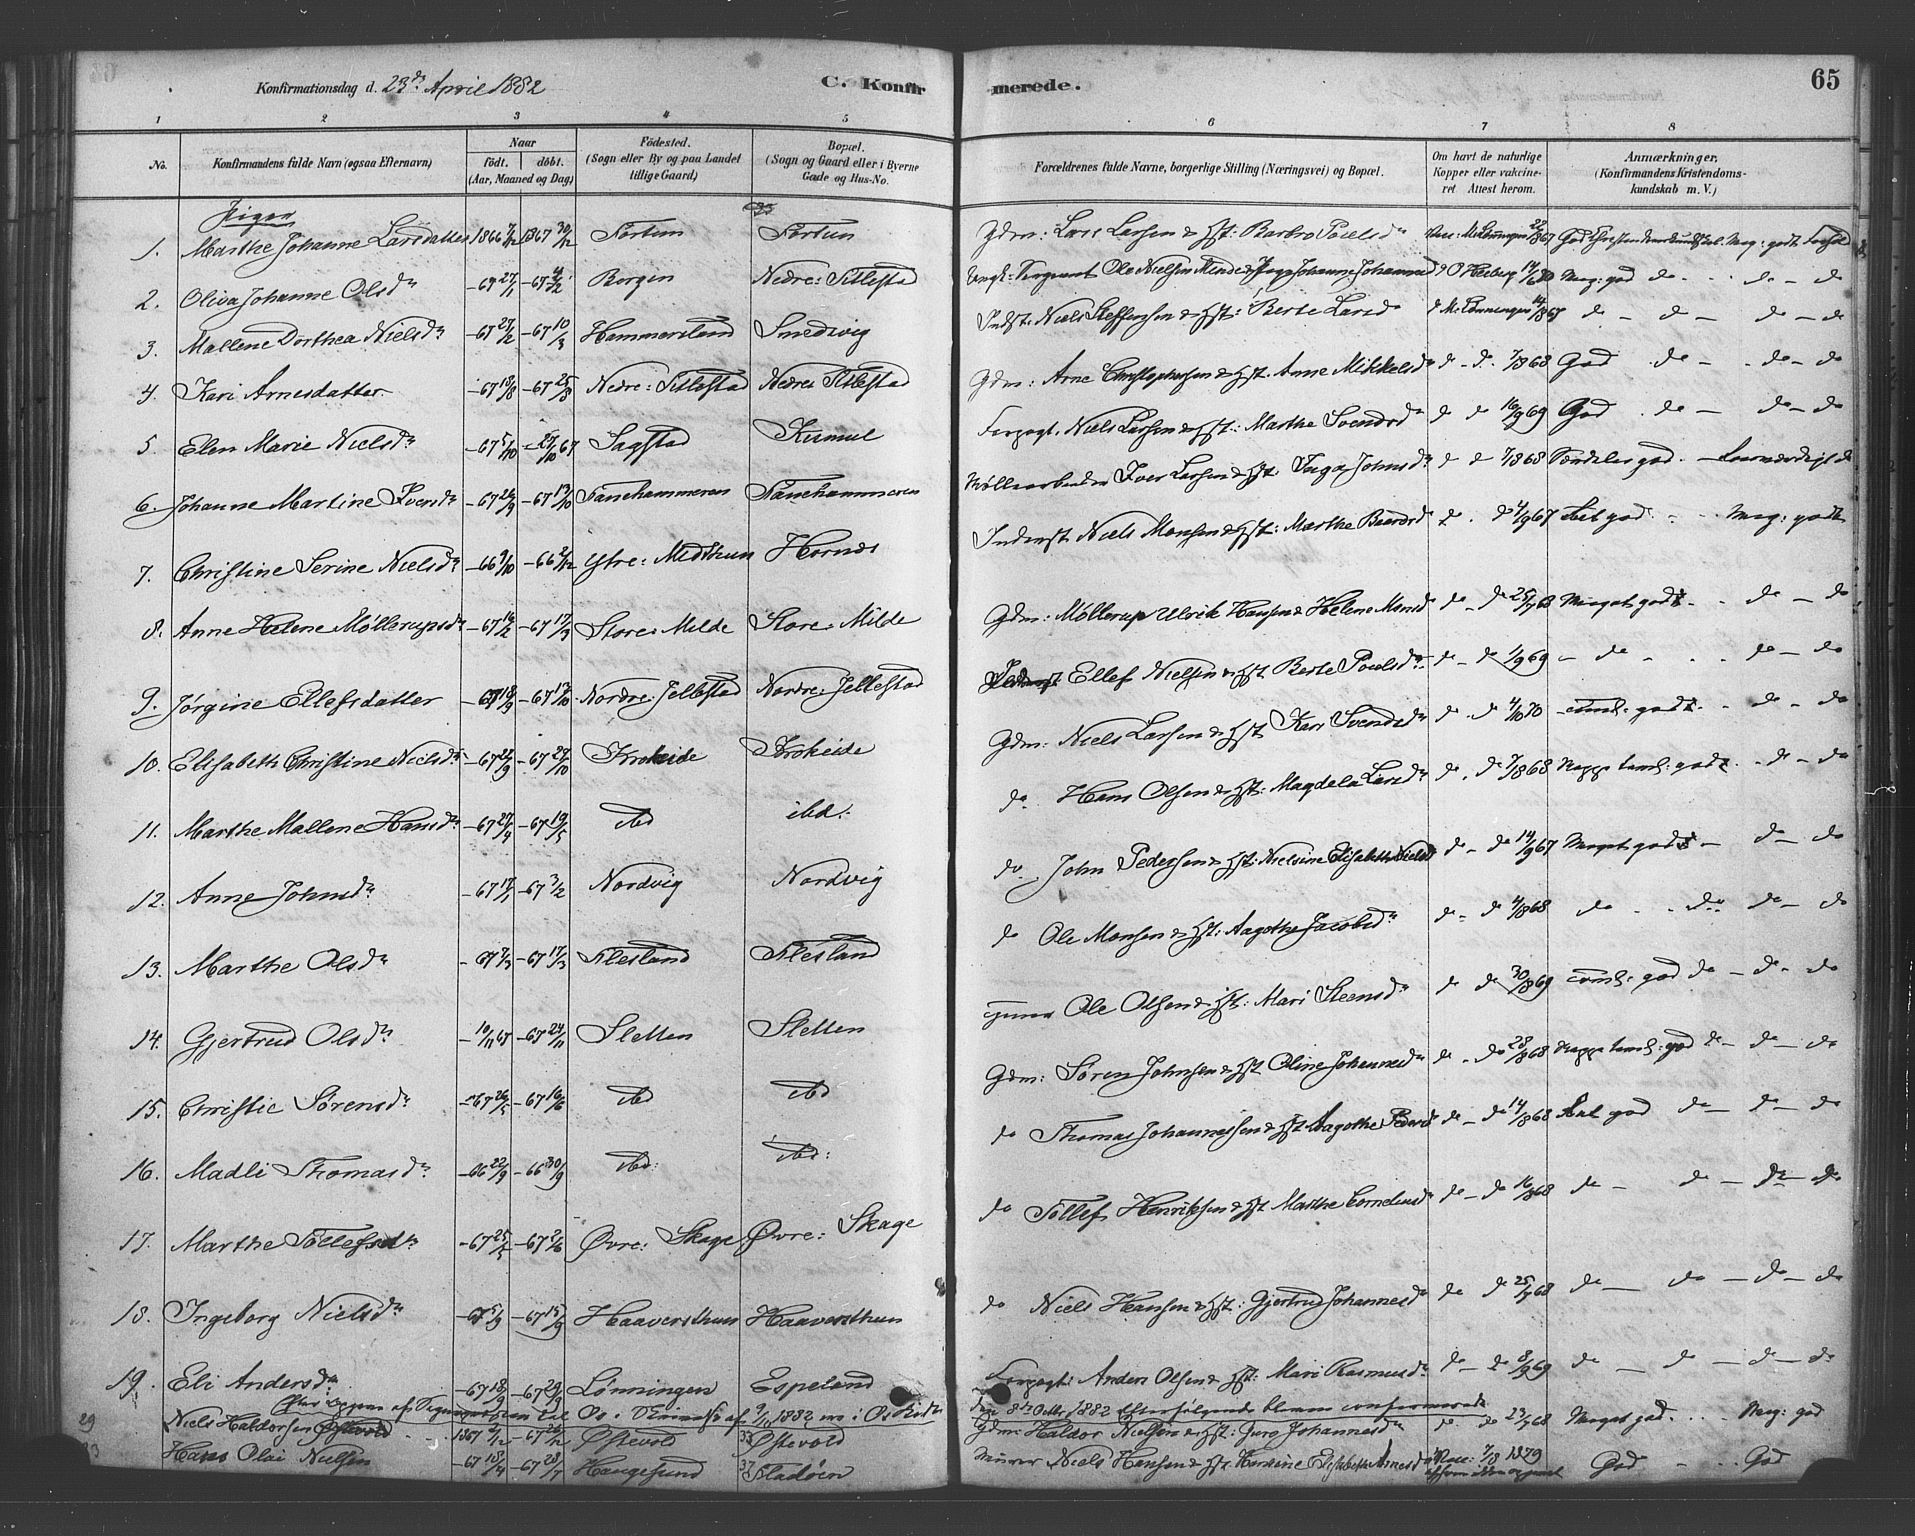 Konfirmationsdag d. 23de April 1882
C. Konfirmerede.
65
1 2 3 4 5 6 7 8
No. Konfirmandens fulde Navn (ogsaa Efternavn) Naar födt. döbt. (Aar, Maaned og Dag) Födested. (Sogn eller By og paa Landet tillige Gaard) Bopæl. (Sogn og Gaard eller i Byerne Gade og Hus-No. Forældrenes fulde Navne, borgerlige Stilling (Næringsvei) og Bopæl. Om havt de naturlige Kopper eller vakcineret Attest herom. Anmærkninger, (Konfirmandens Kristendomskundskab m. V.)
Piger
1. Marthe Johanne Larsdatter 1866 1867 30/12 Fortun Fortun Gdm: Lars Larsen & Hst: Barbro Poulsdr
2. Oliva Johanne Olsdr -67 27/1 -67 Borgen Nedre: Titlestad Sergeant Ole Nielsen Mende & Inga Johanne Johannesd Meg: god do - do - do
3. Mallene Dorthea Nielsdr -67 27/2 -67 10/3 Hammersland Smedvig Indst: Niels Steffensen & Hst: Berte Larsd do - do - do - do
4. Kari Arnesdatter -67 18/8 -67 25/8 Nedre: Titlestad Nedre Titlestad Gdm: Arne Christophersen & Hst. Anne Mikkelsd do - do. 7/8 68 God do - do - do
5. Elen Marie Nielsdr -67 5/10 -27/10 67 Sagstad Kismul Forpagt. Niels Larsen & Hst: Marthe Svendsdr do do 16/9 69 God do - do - do
6. Johanne Martine Iversdr -67 26/9 -67 13/10 Fanehammeren Fanehammeren Møllearbeider Iver Larsen & Hst Inga Johnsdr do do 7/8 68 Særdeles god
7. Christine Serine Nielsdr -66 -66 Ytre: Midthun Hornæs Inderst Niels Monsen & Hst: Marthe Baardsd do. do 4/9 67 god - Meg: godt
8. Anne Helene Møllerupsdr -67 16/2 -67 17/3 Store: Milde Store: Milde Gdm: Møllerup Ulrik Hansen & Helene Monsd do - do Meget godt. - do - do
9. Jørgine Ellefsdatter -67 18/9 -67 13/10 Nordre: Jellestad Nordre: Jellestad Ellef Nielsen & Hst Berte Poulsdr do - do 1/9 69 - do - do - do
10. Elisabeth Christine Nielsdr -67 22/9 -67 27/10 Krokeide Krokeide Gdm: Niels Larsen & Hst Kari Svendsdr do. do 4/10 70 - do - do
11. Marthe Mallene Hansdr -67 27/4 -67 19/5 ibd ibd. do Hans Olsen & Hst: Magdela Larsdr do. do 7/8 68 do - do
12. Anne Johnsdr -67 17/1 -67 3/2 Nordvig Nordvig do. John Pedersen & Hst: Nielsine Elisabeth Nielsd do - do 14/9 67 Meget godt - do - do
13. Marthe Olsdr -67 -67 17/3 Flesland Flesland do Ole Monsen & Hst: Aagothe Jacobsdr do - do 4/8 68 do - do do - do
14. Gjertrud Olsdr -10/11 67 -67 24/11 Sletten Sletten Ole Olsen & Hst: Mari Steensdr do do 30/8 69 god do - do - do
15. Christie Sørensdr -67 26/5 -67 16/6 ibd ibd Gdm: Søren Johnsen & Hst Oline Johannesdr do - do 28/8 68 god do - do - do
16. Madli Thomasdr -66 22/9 -66 30/9 ibd: ibd: do Thomas Johannessen & Hst Aagothe Pedersd do - do 14/8 68 god do - do - do
17. Marthe Tollefsdr -67 25/5 -67 2/6 Øvre: Skage Øvre: Skage do Tollef Henriksen & Hst Marthe Corneliusd do - do 16/8 68 do - do - do - do
18. Ingeborg Nielsdr -67 5/9 -67 15/9 Haaversthun Haaversthun do Niels Hansen & Hst: Gjertrud Johannesdr do do do - do - do - do
19. Eli Andersdr -67 18/9 -67 29/9 Lønningen Espeland Forpagt: Anders Olsen & Hst: Mari Rasmusdr do - do 8/9 69 do - do - do - do
Efter af Sogneprsten til Os 9/11 1882 i Os
Den 8de Octbr 1882 efterfølgende bleven confirmerede
29 Niels Haldorsen Østevold 1867 -67 26/12 Østevold 33 Østevold Gdm: Haldor Nielsen & Hst: Guro Johannesdr do do Meget god. - Meg: god
33 Hans Olai Nielsen -67 18/4 -67 28/7 Haugesund 37 Fladøen Murer Niels Hansen & Hst Karstine Elisabeth Arnesd Vacc: 7/8 1879 God - God